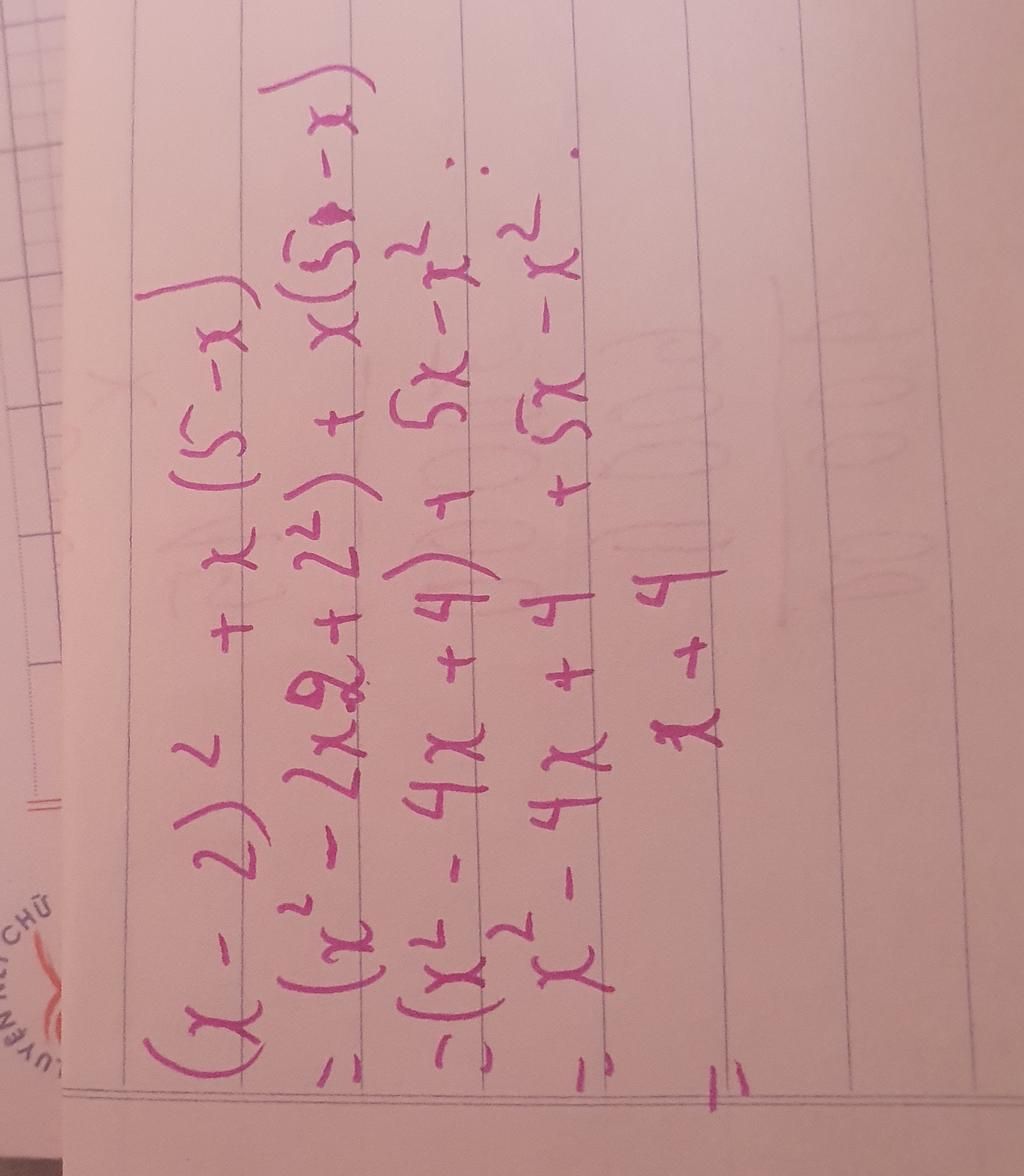 (x - 2)² + x(5 - x)
= (x² - 2x2 + 2²) + x(5 - x)
= (x² - 4x + 4) + 5x - x²
= x² - 4x + 4 + 5x - x²
= x + 4
CHỮ